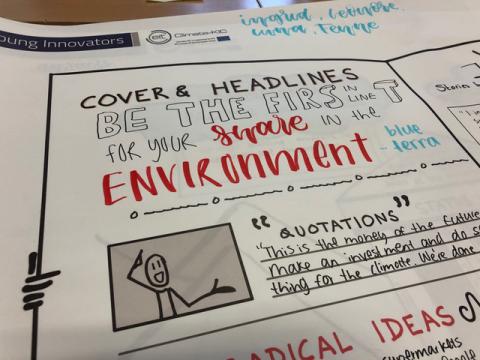 oung Innovators
eit Climate-KIC
ingrid, leonore,
emma, Tenne
COVER & HEADLINES
BE THE FIRST IN LINE
FOR YOUR share IN the
ENVIRONMENT
blue
-terra
Stories
"QUOTATIONS"
"This is the money of the future
make an investment and do so
thing for the climate. We're done
RADICAL IDEAS
supermarkets
people